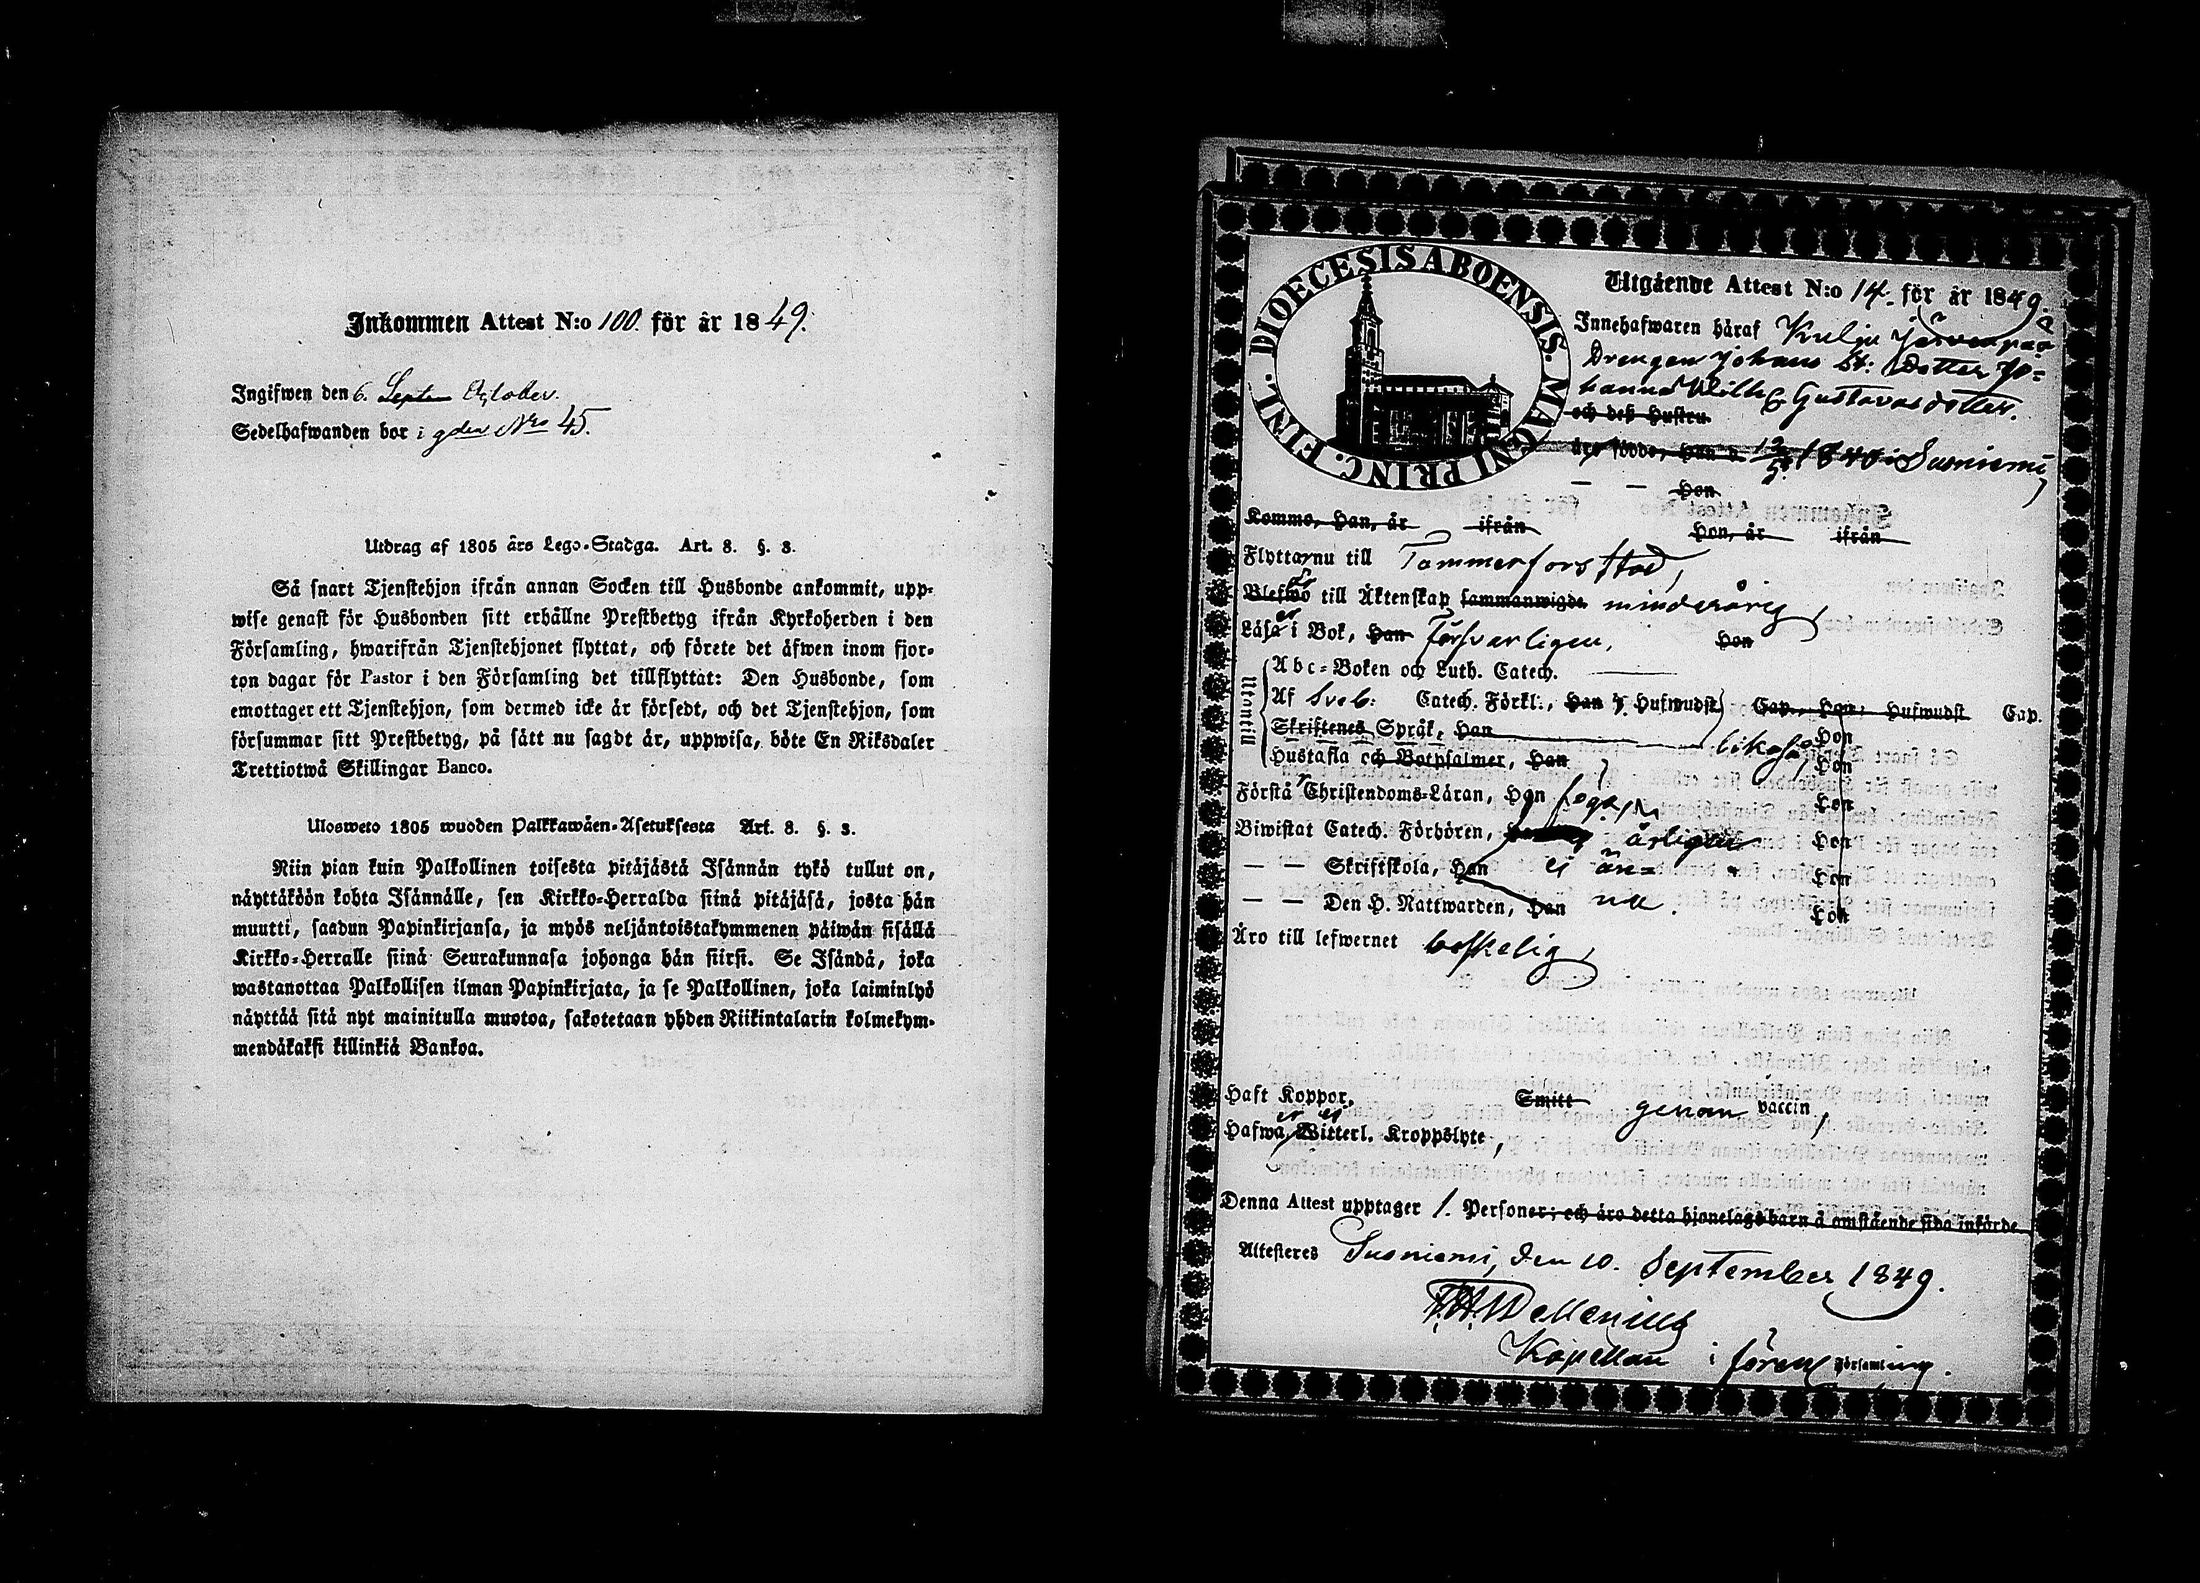 Inkommen Attest N:o 100. för år 1849.
Ingifwen den 6. Septem October.
Sedelhafwanden bor i gden Nro 45.
Utdrag af 1805 års Lego-Stadga. Art. 8. §. 3.
Så snart Tjenstehjon ifrån annan Socken till Husbonde ankommit, upp-
wise genast för Husbonden sitt erhållne Prestbetyg ifrån Kyrkoherden i den
Församling, hwarifrån Tjenstehjonet flyttat, och förete det äfwen inom fjor-
ton dagar för Pastor i den Församling det tillflyttat: Den Husbonde, som
emottager ett Tjenstehjon, som dermed icke är försedt, och det Tjenstehjon, som
försummar sitt Prestbetyg, på sätt nu sagdt är, uppwisa, böte En Riksdaler
Trettiotwå Skillingar Banco.
Ulosweto 1805 wuoden Palkkawäen-Asetuksesta Art. 8. §. 3.
Niin pian kuin Palkollinen toisesta pitäjästä Isännän tykö tullut on,
näyttäköön kohta Isännälle, sen Kirkko-Herralda siinä pitäjäsä, josta hän
muutti, saadun Papinkirjansa, ja myös neljäntoistakymmenen päiwän sisällä
Kirkko-Herralle siinä Seurakunnasa johonga hän siirsi. Se Isändä, joka
wastanottaa Palkollisen ilman Papinkirjata, ja se Palkollinen, joka laiminlyö
näyttää sitä nyt mainitulla muotoa, sakotetaan yhden Riikintalarin kolmekym-
mendäkaksi killinkiä Bankoa.
DIOECESIS ABOENSIS. MAGNI PRINC. FINL.
Utgående Attest N:o 14. för år 1849.
Innehafwaren häraf Kulju Järvenpää
Drengen Johans St: Dotter Jo-
hanna Wilh. Gustavsdotter.
och deß Hustru
äro födde, Han d. 12/5 1840 i Suoniemi,
— — Hon
Kommo, Han, år ifrån Hon, år ifrån
Flyttar nu till Tammerfors stad,
Blefwo till Äktenskap sammanwigde minderårig,
Läsa i Bok, Han försvarligen, Hon
Utantill
Abc-Boken och Luth. Catech.
Af Sveb: Catech. Förkl., Han Hufwudst. Cap., Hon: Hufwudst. Cap.
Skriftenes Språk, Han likaså, Hon
Hustafla och Botpsalmer, Han Hon
Förstå Christendoms-Läran, Han Hon
Biwistat Catech. Förhören, årligen Hon
— — Skriftskola, Han ei än- Hon
— — Den H. Nattwarden, Han nu. Hon
Äro till lefwernet beskelig,
Haft Koppor, Smitt genom vaccin,
Hafwa Witterl. Kroppslyte,
Denna Attest upptager 1. Personer; och äro detta hjonelags barn å omstående sida införde
Attesteres Suoniemi, den 10. September 1849.
Kapellan i förenl Församling.